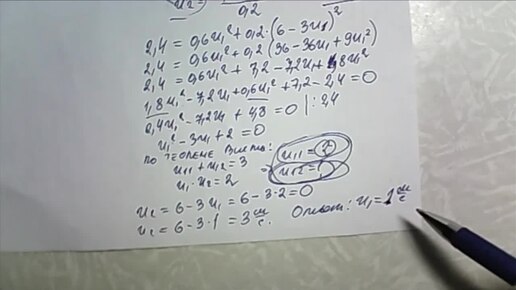 0,2
2,4 = 0,6u₁² + 0,2·(6 − 3u₁)²
2,4 = 0,6u₁² + 0,2(36 − 36u₁ + 9u₁²)
2,4 = 0,6u₁² + 7,2 − 7,2u₁ + 1,8u₁²
1,8u₁² − 7,2u₁ + 0,6u₁² + 7,2 − 2,4 = 0
2,4u₁² − 7,2u₁ + 4,8 = 0 | : 2,4
u₁² − 3u₁ + 2 = 0
по теореме Виета:
u₁₁ + u₁₂ = 3
u₁₁ = 2
u₁ · u₂ = 2
u₁₂ = 1
u₂ = 6 − 3u₁ = 6 − 3·2 = 0
u₂ = 6 − 3·1 = 3 м/с.
Ответ: u₁ = 1 м/с